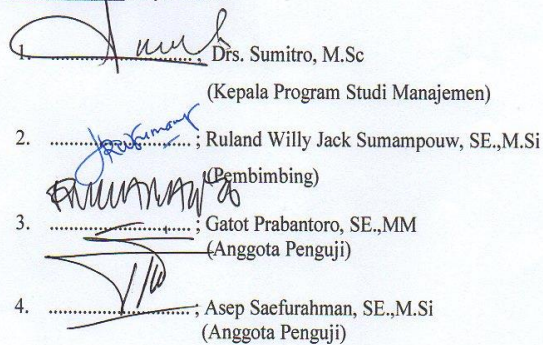 1. ................................ ; Drs. Sumitro, M.Sc
(Kepala Program Studi Manajemen)
2. ................................ ; Ruland Willy Jack Sumampouw, SE.,M.Si
(Pembimbing)
3. ................................ ; Gatot Prabantoro, SE.,MM
(Anggota Penguji)
4. ................................ ; Asep Saefurahman, SE.,M.Si
(Anggota Penguji)